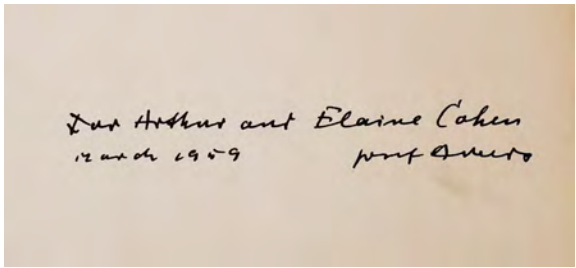 For Arthur and Elaine Cohen
March 1959 Josef Albers